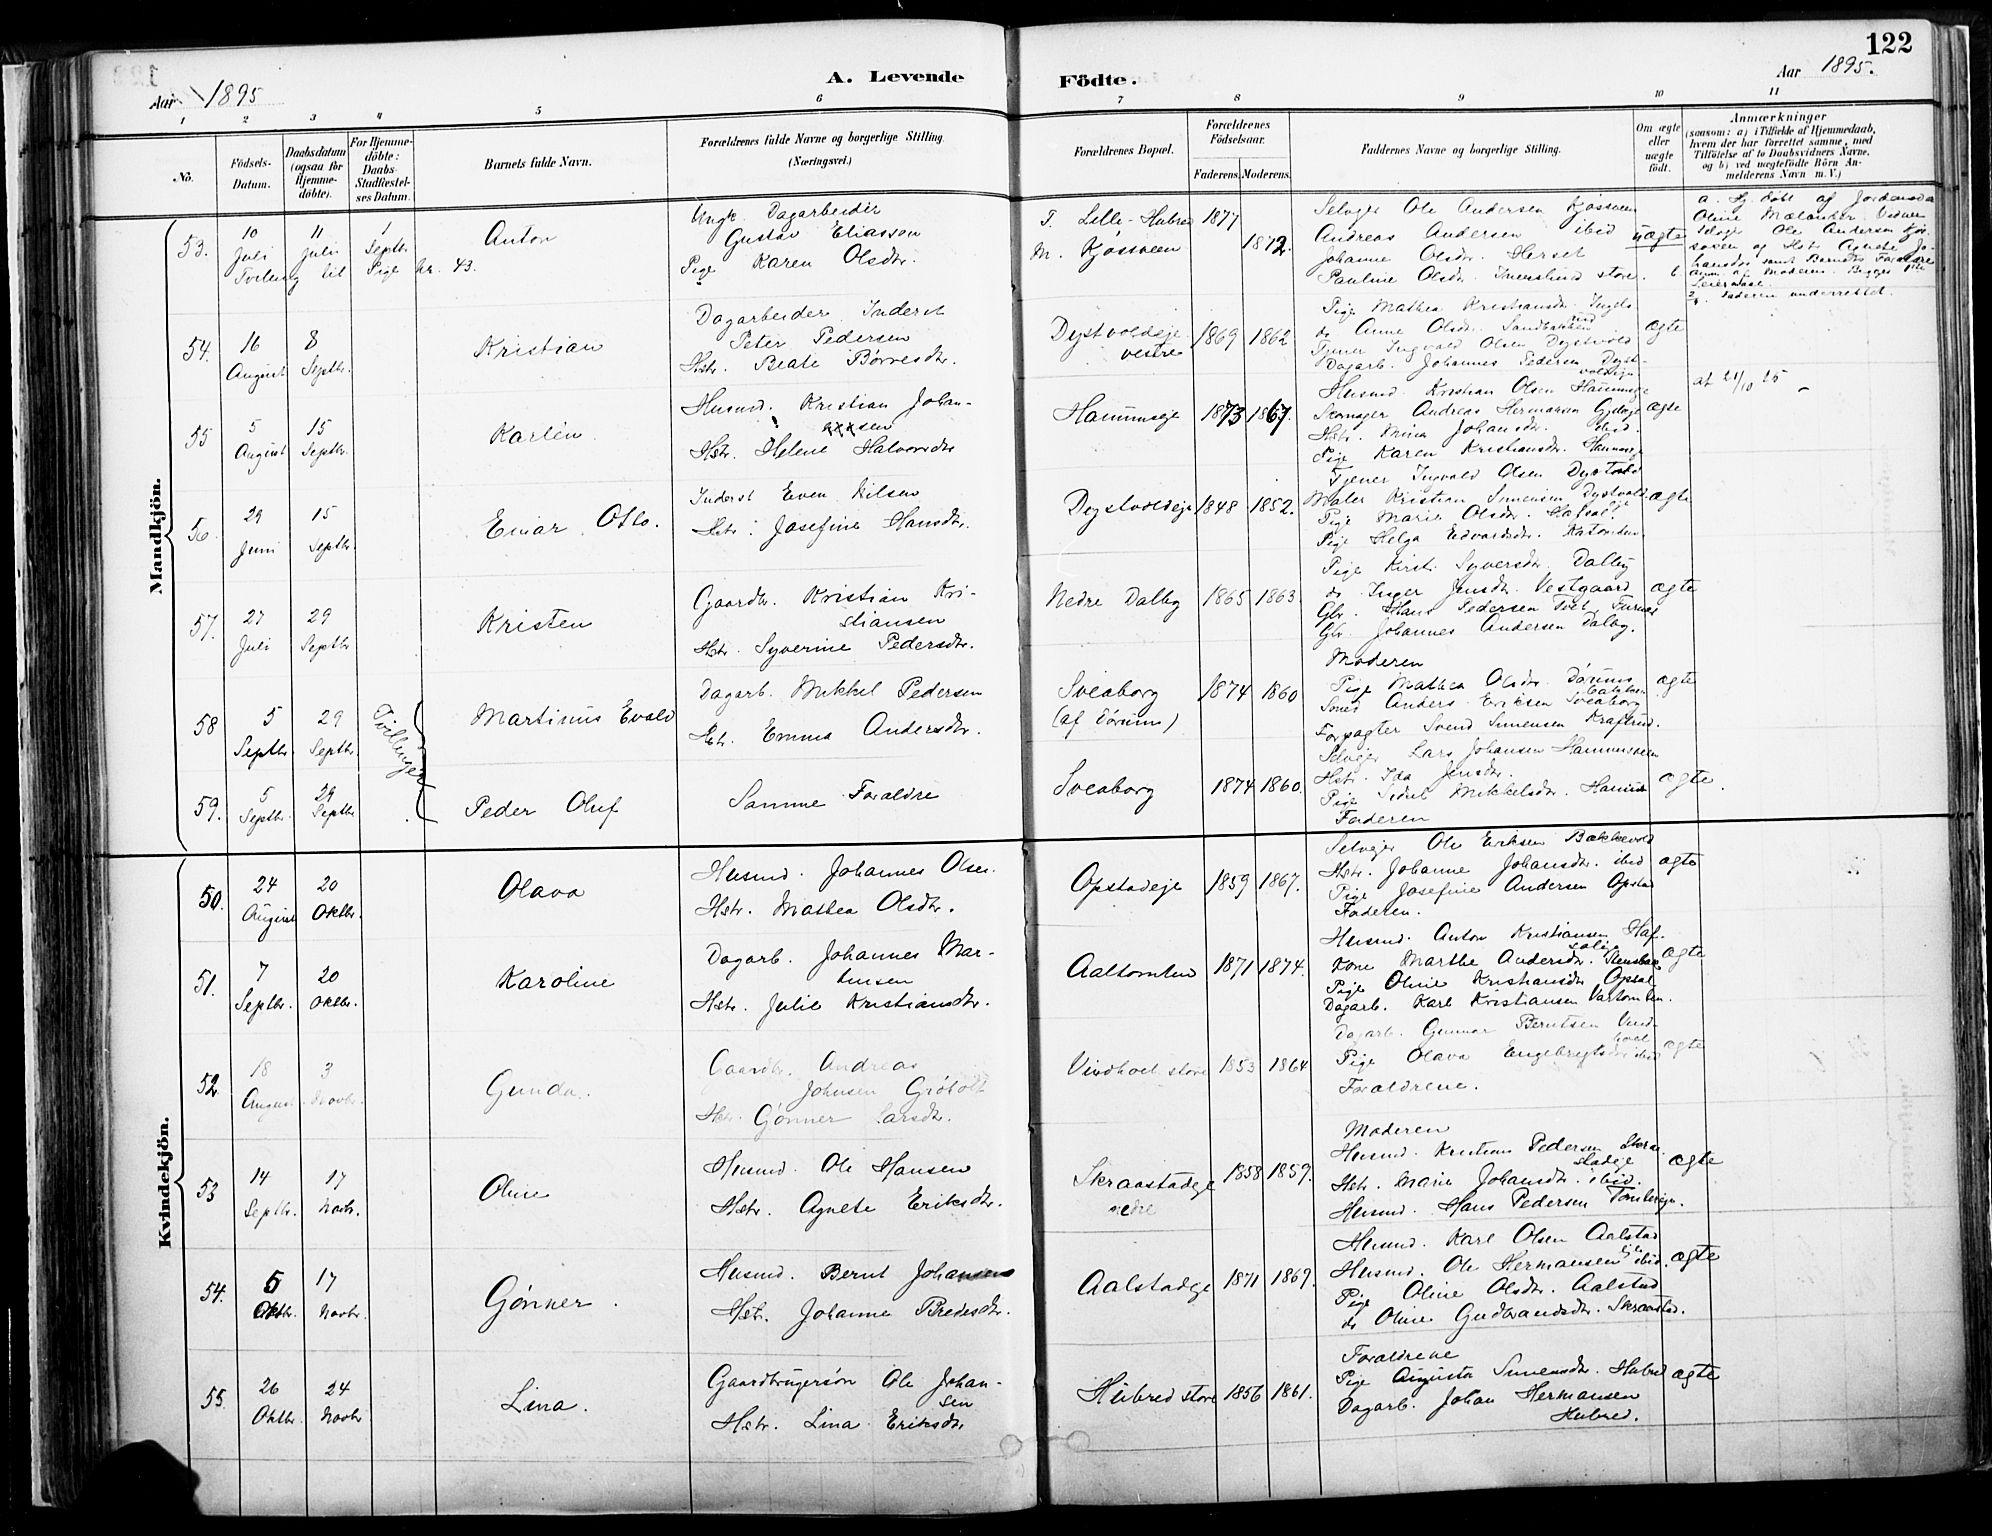 122
Aar 1895
A. Levende Födte.
Aar 1895.
1 2 3 4 5 6 7 8 9 10 11
No.
Födsels-Datum.
Daabsdatum (ogsaa for Hjemme-döbte).
For Hjemme-döbte: Daabs-Stadfæstel-ses Datum.
Barnets fulde Navn.
Forældrenes fulde Navne og borgerlige Stilling. (Næringsvei.)
Forældrenes Bopæl.
Forældrenes Födselsaar.
Faderens. Moderens.
Faddernes Navne og borgerlige Stilling.
Om ægte eller uægte födt.
Anmærkninger
(saasom: a) i Tilfælde af Hjemmedaab,
hvem der har forrettet samme, med
Tilföielse af to Daabsvidners Navne,
og b) ved uægtefödte Börn An-
melderens Navn m. V.)
Mandkjön.
53. 10 Juli 11 Juli 1 Septbr. Anton
Tvilling til Pige Nr. 43.
Ungk. Dagarbeider
Gustav Eliassen
Pige Karen Olsdtr.
F. Lille-Hubred 1877
M. Kjøsveen 1872.
Selveier Ole Andersen Kjøsveen
Andreas Andersen ibid
Johanne Olsdtr. Herset
Pauline Olsdtr. Imerslund store.
uægte
Faderen underrettet.
54. 16 August 8 Septbr. Kristian
Dagarbeider Inderst
Peter Pedersen
Hstr. Beate Børresdtr.
Dystvoldeje vestre 1869 1862
Pige Mathea Kristiansdr.
do Anne Olsdr. Sandbakken
Tjener Ingvald Olsen Dystvold
Dagarb. Johannes Pedersen Dyst-
voldeje
ægte
55 5 August 15 Septbr. Karlén
Husmd. Kristian Johan-
sen
Hstr. Helene Halvorsdtr
Hammeje 1873 1867.
Husmd. Kristian Olsen Hammeje
Skomager Andreas Hermansen
Hstr. Mina Johansdr. ibid.
Pige Karen Kristiansdr. Hammeje
ægte
at 21/10 25
56. 29 Juni 15 Septbr. Einar Otto.
Inderst Even Nilsen
Hstr. Josefine Hansdtr.
Dystvoldeje 1848 1852.
Tjener Ingvald Olsen Dystvold
Maler Kristian Simensen Dystvold
Pige Marie Olsdr.
Pige Helga Edvardsdr.
ægte
57. 27 Juli 29 Septbr Kristen
Gaardbr. Kristian Kri-
stiansen
Hstr. Syverine Pedersdtr.
Nedre Dalby 1865 1863.
Pige Kirsti Syversdtr. Dalby
do Inger Jensdtr Vestgaard
Gbr. Hans Pedersen Tvet, Furnes
Gbr. Johannes Andersen Dalby.
ægte
58 5 Septbr. 29 Septbr. Tvillinger Martinus Evald
Dagarb. Mikkel Pedersen
Hstr. Emma Andersdtr.
Sveaborg (af Dørum) 1874 1860
Moderen
Pige Mathea Olsdtr. Dørums
Smed Anders Eriksen Sveaborg
Forpagter Svend Simensen Kraftrud.
ægte
59. 5 Septbr. 29 Septbr Peder Oluf
Samme Forældre
Sveaborg 1874 1860.
Selveier Lars Johansen Hammersveen
Hstr. Ida Jensdtr.
Pige Mikkelsdtr.
Faderen
ægte.
Kvindekjön.
50. 24 August 20 Oktbr. Olava
Husmd. Johannes Olsen.
Hstr. Mathea Olsdtr.
Opstadeje 1859 1867.
Selvejer Ole Eriksen Bækkevold
Hstr. Johanne Johansdtr. ibid
Pige Josefine Andersen Opstad
Faderen.
ægte
51. 7 Septbr. 20 Oktbr. Karoline
Dagarb. Johannes Mar-
tinsen
Hstr. Julie Kristiansdtr.
Aaltomten 1871 1874.
Husmd. Anton Kristiansen Haf-
Kone Marthe Andersdr.
Pige Oline Kristiansdtr Opsal
Dagarb. Karl Kristiansen
ægte
52. 18 August 3 Novbr. Gunda.
Gaardbr. Andreas
Johnsen Grøtolt
Hstr. Gjønner Larsdtr.
Vindhoel store 1853 1864
Dagarb. Gunnar Berntsen Vind-
hoel
Pige Olava Engebregtsdtr ibid
Forældrene.
ægte
53 14 Septbr. 17 Novbr. Oline
Husmd. Ole Hansen
Hstr. Agnete Eriksdtr.
Skraastadeje nedre 1858 1859.
Moderen
Husmd. Kristian Pedersen Skraa-
stadeje
Hstr. Marie Johansdtr. ibid.
Husmd. Hans Pedersen
ægte
54. 5 Oktbr. 17 Novbr. Gjønner.
Husmd. Bernt Johansen
Hstr. Johanne Bredesdtr.
Aalstadeje 1871 1869.
Husmd. Karl Olsen Aalstad
Husmd. Ole Hermansen ibid.
Pige Oline Olsdtr. Aalstad
do Oline Gudbrandsdtr. Skraastad.
ægte
55. 26 Oktbr. 24 Novbr Lina.
Gaardbrugersøn Ole Johan-
sen
Hstr. Lina Eriksdtr
Hubred store 1856 1861.
Forældrene
Pige Augusta Simensdtr. Hubred
Dagarb. Johan Hermansen
Hubred.
ægte